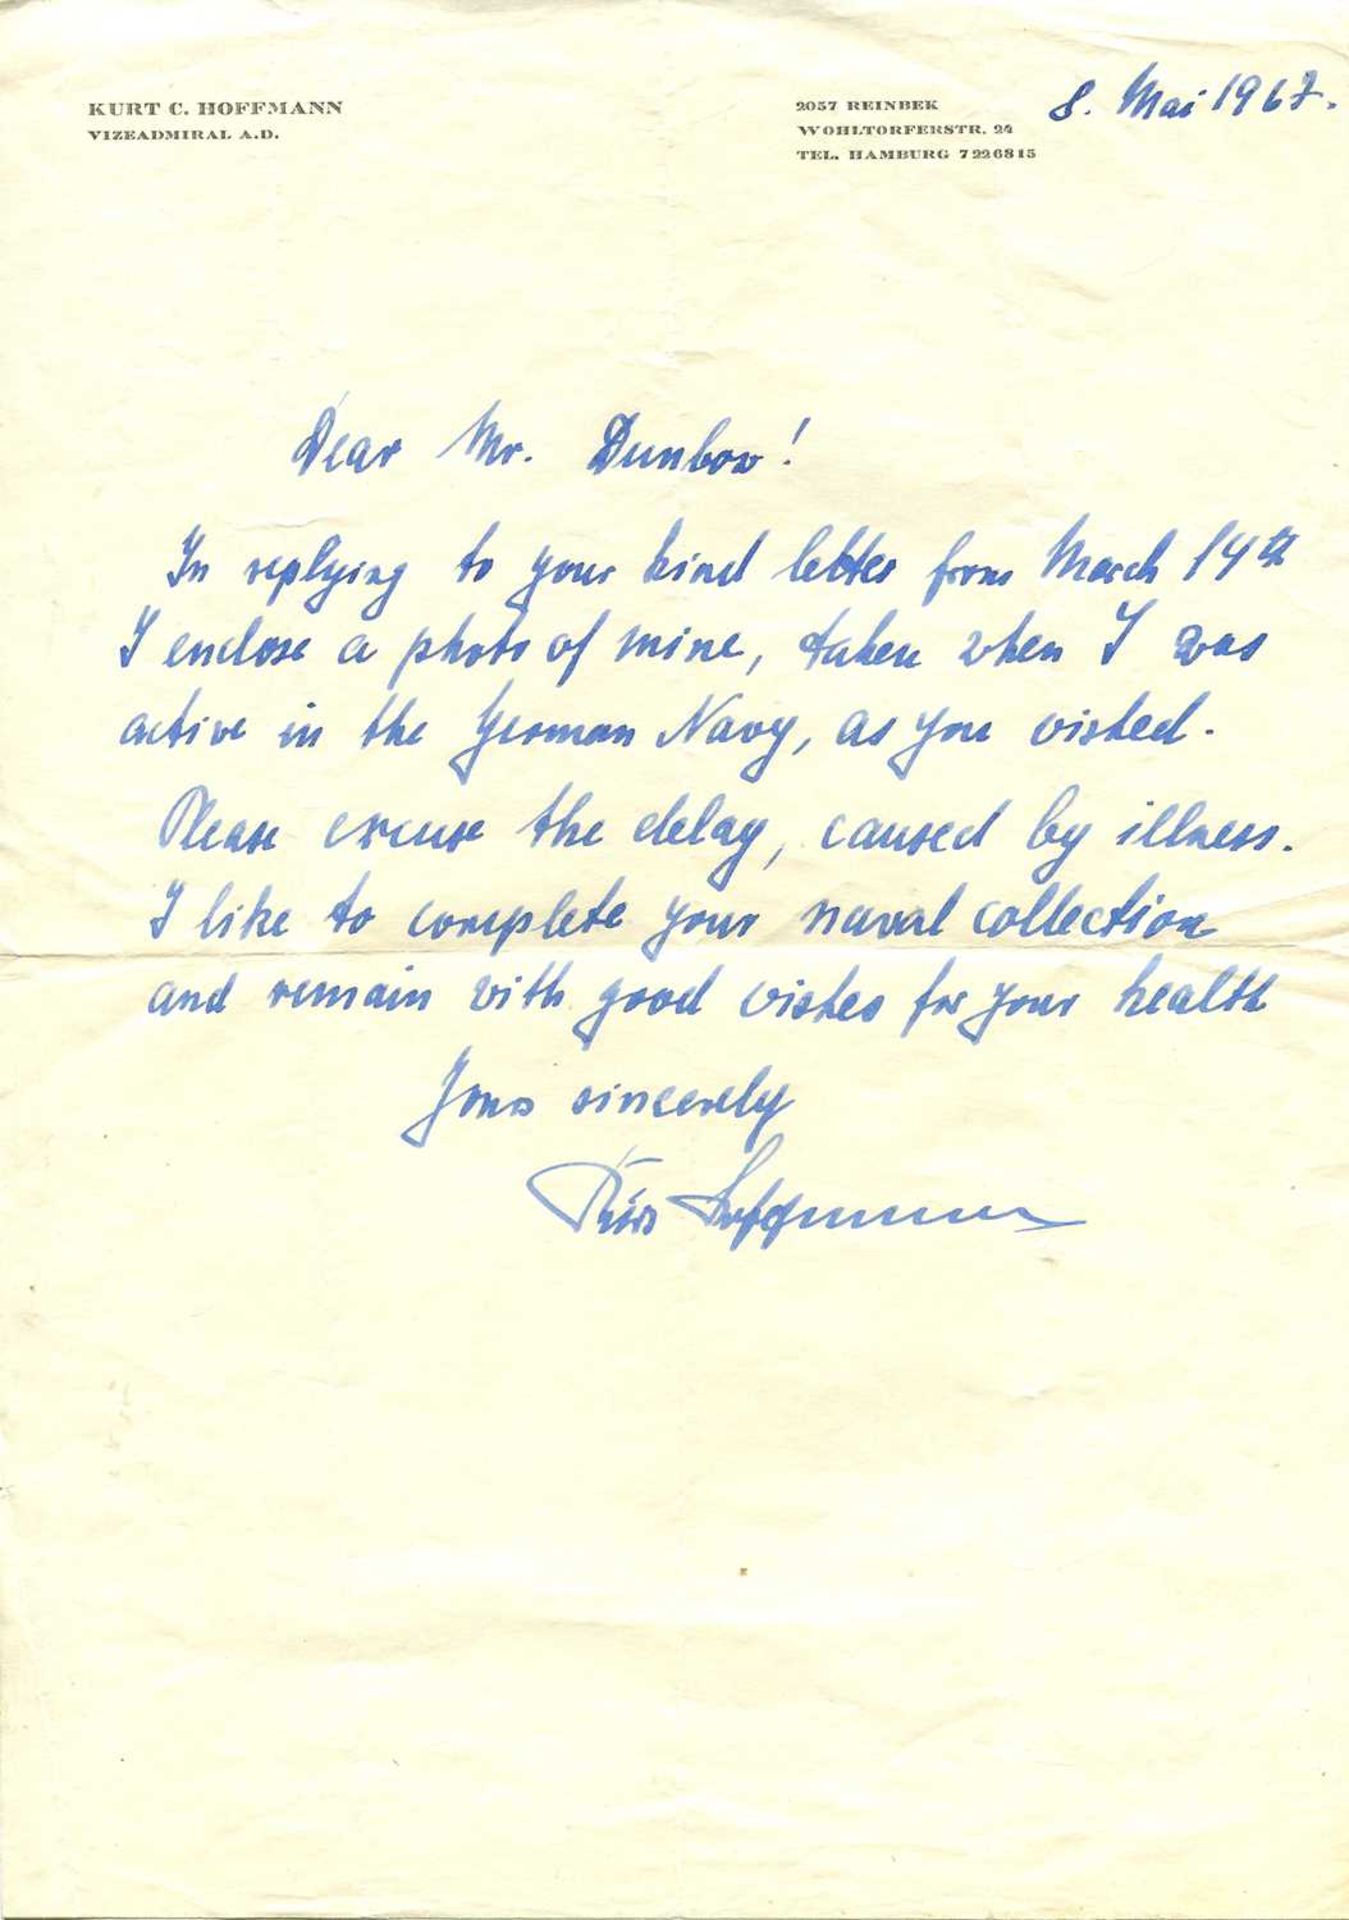 KURT C. HOFFMANN
VIZEADMIRAL A.D.
2057 REINBEK
WOHLTORFERSTR. 24
TEL. HAMBURG 7226815
8. Mai 1967.
Dear Mr. Dunbow!
In replying to your kind letter from March 14th
I enclose a photo of mine, taken when I was
active in the German Navy, as you wished.
Please excuse the delay, caused by illness.
I like to complete your naval collection
and remain with good wishes for your health
Yours sincerely
Kurt Hoffmann